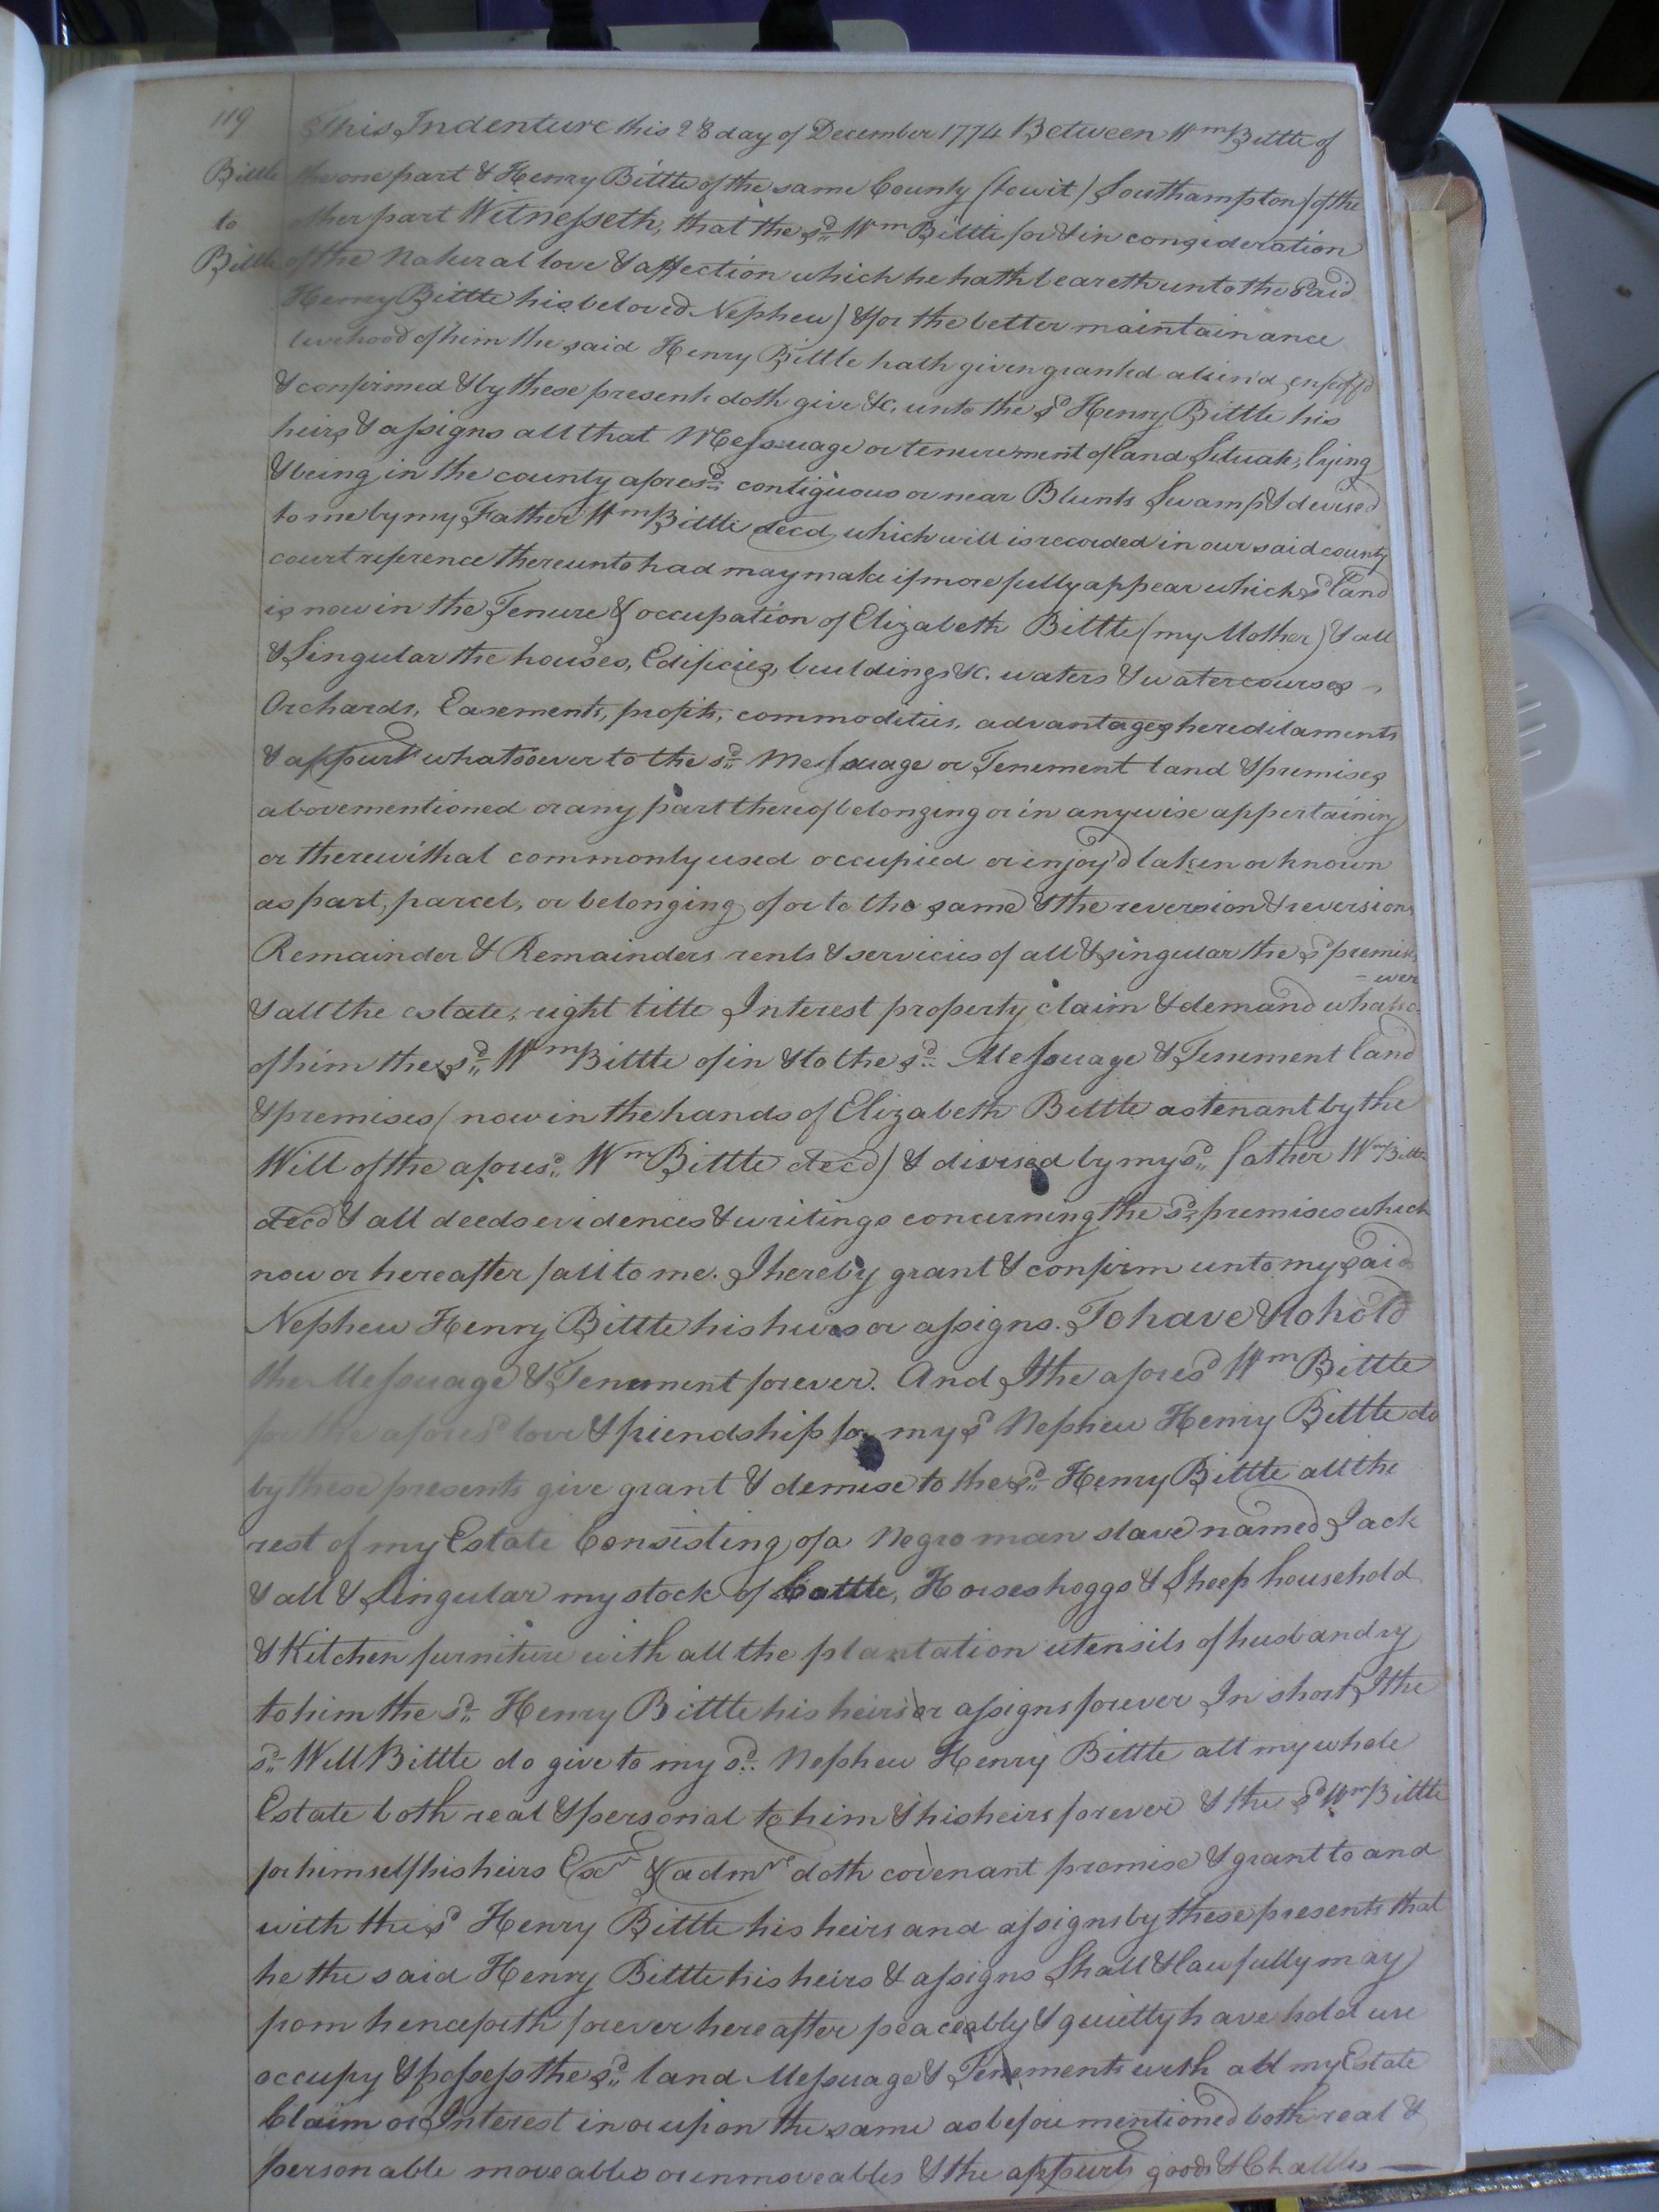 119
Bittle
to
Bittle
This Indenture this 28 day of December 1774 Between Wm Bittle of
the one part & Henry Bittle of the same County (towit) Southampton) of the
other part Witnesseth, that the sd Wm Bittle for & in consideration
of the Natural love & affection which he hath beareth unto the said
Henry Bittle his beloved Nephew) & for the better maintainance
livehood of him the said Henry Bittle hath given granted alien'd enfeoff'd
& confirmed & by these presents doth give &c. unto the sd Henry Bittle his
heirs & assigns all that Messuage or tenurement of land Situate, lying
& being in the county aforesd contiguous or near Blunts Swamp & devised
to me by my Father Wm Bittle decd, which will is recorded in our said county
court reference thereunto had may make it more fully appear which sd land
is now in the Tenure & occupation of Elizabeth Bittle (my Mother) & all
& Singular the houses, Edificies, buildings &c. waters & watercourses
Orchards, Easements, profits, commodities, advantages hereditaments
& appurts whatsoever to the sd Messuage or Tenement land & premises
abovementioned or any part thereof belonging or in anywise appertaining
or therewithal commonly used occupied or injoy'd taken or known
as part, parcel, or belonging of or to the same & the reversion & reversions
Remainder & Remainders rents & servicies of all & singular the sd premises
& all the estate, right title Interest property claim & demand whatso-
-ever
of him the sd Wm Bittle of in & to the sd Messuage & Tenement land
& premises (now in the hands of Elizabeth Bittle as tenant by the
Will of the aforesd Wm Bittle decd) & divised by my sd father Wm Bittle
decd & all deeds evidences & writings concerning the sd premises which
now or hereafter fall to me. I hereby grant & confirm unto my said
Nephew Henry Bittle his heirs or assigns. To have & to hold
the Messuage & Tenement forever. And I the aforesd Wm Bittle
for the aforesd love & friendship for my sd Nephew Henry Bittle do
by these presents give grant & demise to the sd Henry Bittle all the
rest of my Estate Consisting of a Negro man slave named Jack
& all & Singular my stock of Cattle, Horses hoggs & Sheep household
& Kitchen furniture with all the plantation utensils of husbandry
to him the sd Henry Bittle his heirs or assigns forever In short I the
sd Will Bittle do give to my sd Nephew Henry Bittle all my whole
Estate both real & personal to him & his heirs forever & the sd Wm Bittle
for himself his heirs Exrs & admrs doth covenant promise & grant to and
with the sd Henry Bittle his heirs and assigns by these presents that
he the said Henry Bittle his heirs & assigns Shall & lawfully may
from henceforth forever hereafter peaceably & quietly have hold use
occupy & possess the sd land Messuage & Tenements with all my Estate
Claim or Interest in or upon the same as before mentioned both real &
personable moveables or unmoveables & the appurts goods & Chattles